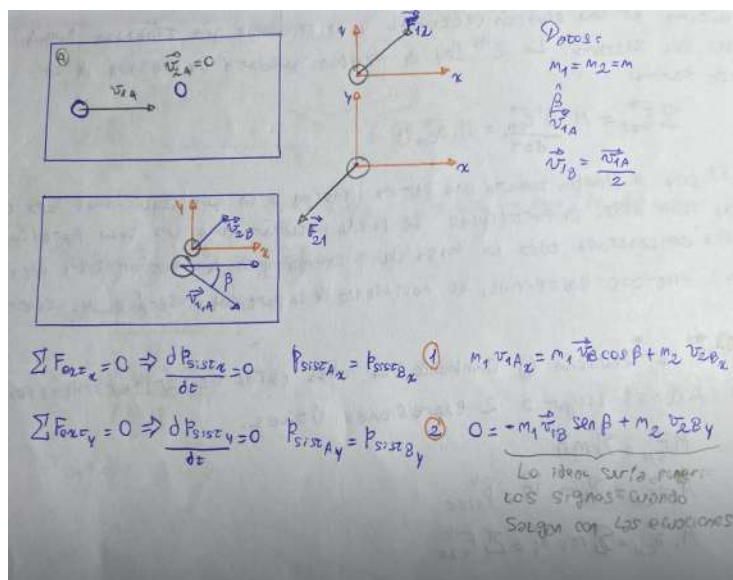 A
v⃗1A
v⃗2A=0
y
F⃗12
x
y
x
F⃗21
Datos:
m1=m2=m
β̂
v⃗1A
v⃗1B = v⃗1A/2
y
v⃗2B
x
β
v⃗1,A
∑Fextx=0 ⇒ dPsistx/dt=0 PsistAx=PsistBx ① m1 v1Ax=m1 v⃗B cosβ+m2 v2Bx
∑Fexty=0 ⇒ dPsisty/dt=0 PsistAy=PsistBy ② 0=-m1 v⃗1B senβ+m2 v2By
Lo ideal sería
Los signos cuando
Salgan con las ecuaciones